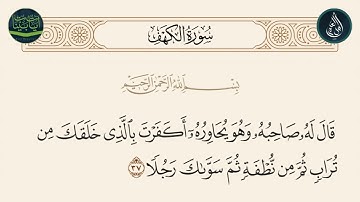 سُورَةُ الكَهْفِ
بِسْمِ اللَّهِ الرَّحْمَٰنِ الرَّحِيمِ
قَالَ لَهُۥ صَاحِبُهُۥ وَهُوَ يُحَاوِرُهُۥٓ أَكَفَرْتَ بِٱلَّذِى خَلَقَكَ مِن
تُرَابٍ ثُمَّ مِن نُّطْفَةٍ ثُمَّ سَوَّىٰكَ رَجُلًا ٣٧